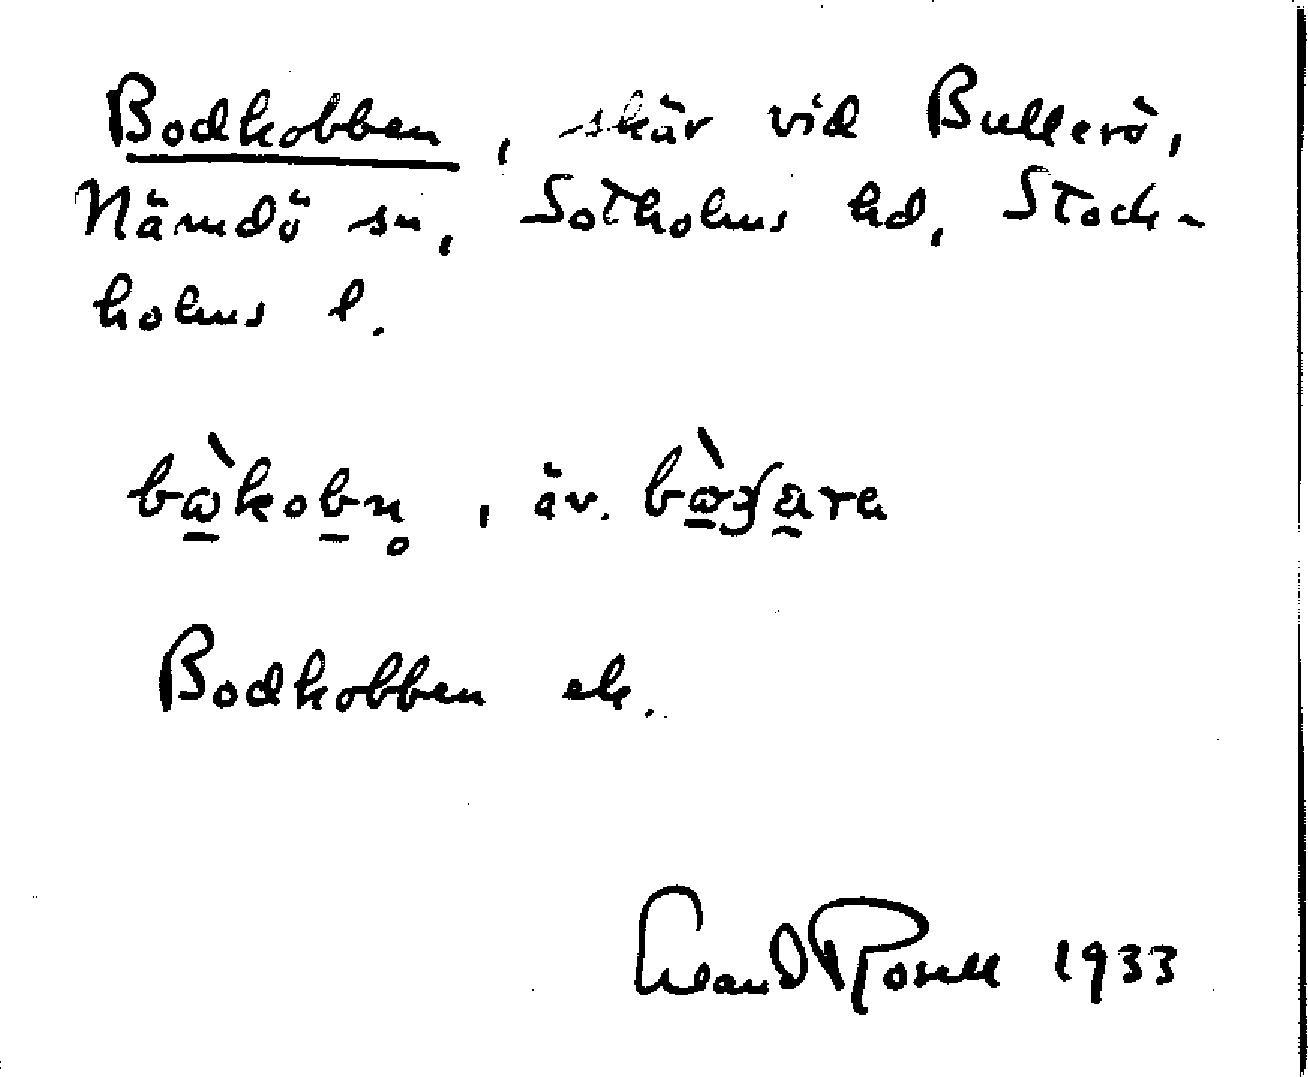 Bodkobben, skär vid Bullerö,
Nämdö sn, Sotholms hd, Stock-
holms l.
bὼkobn̥, äv.
Bodkobben ek.
Rosell 1933